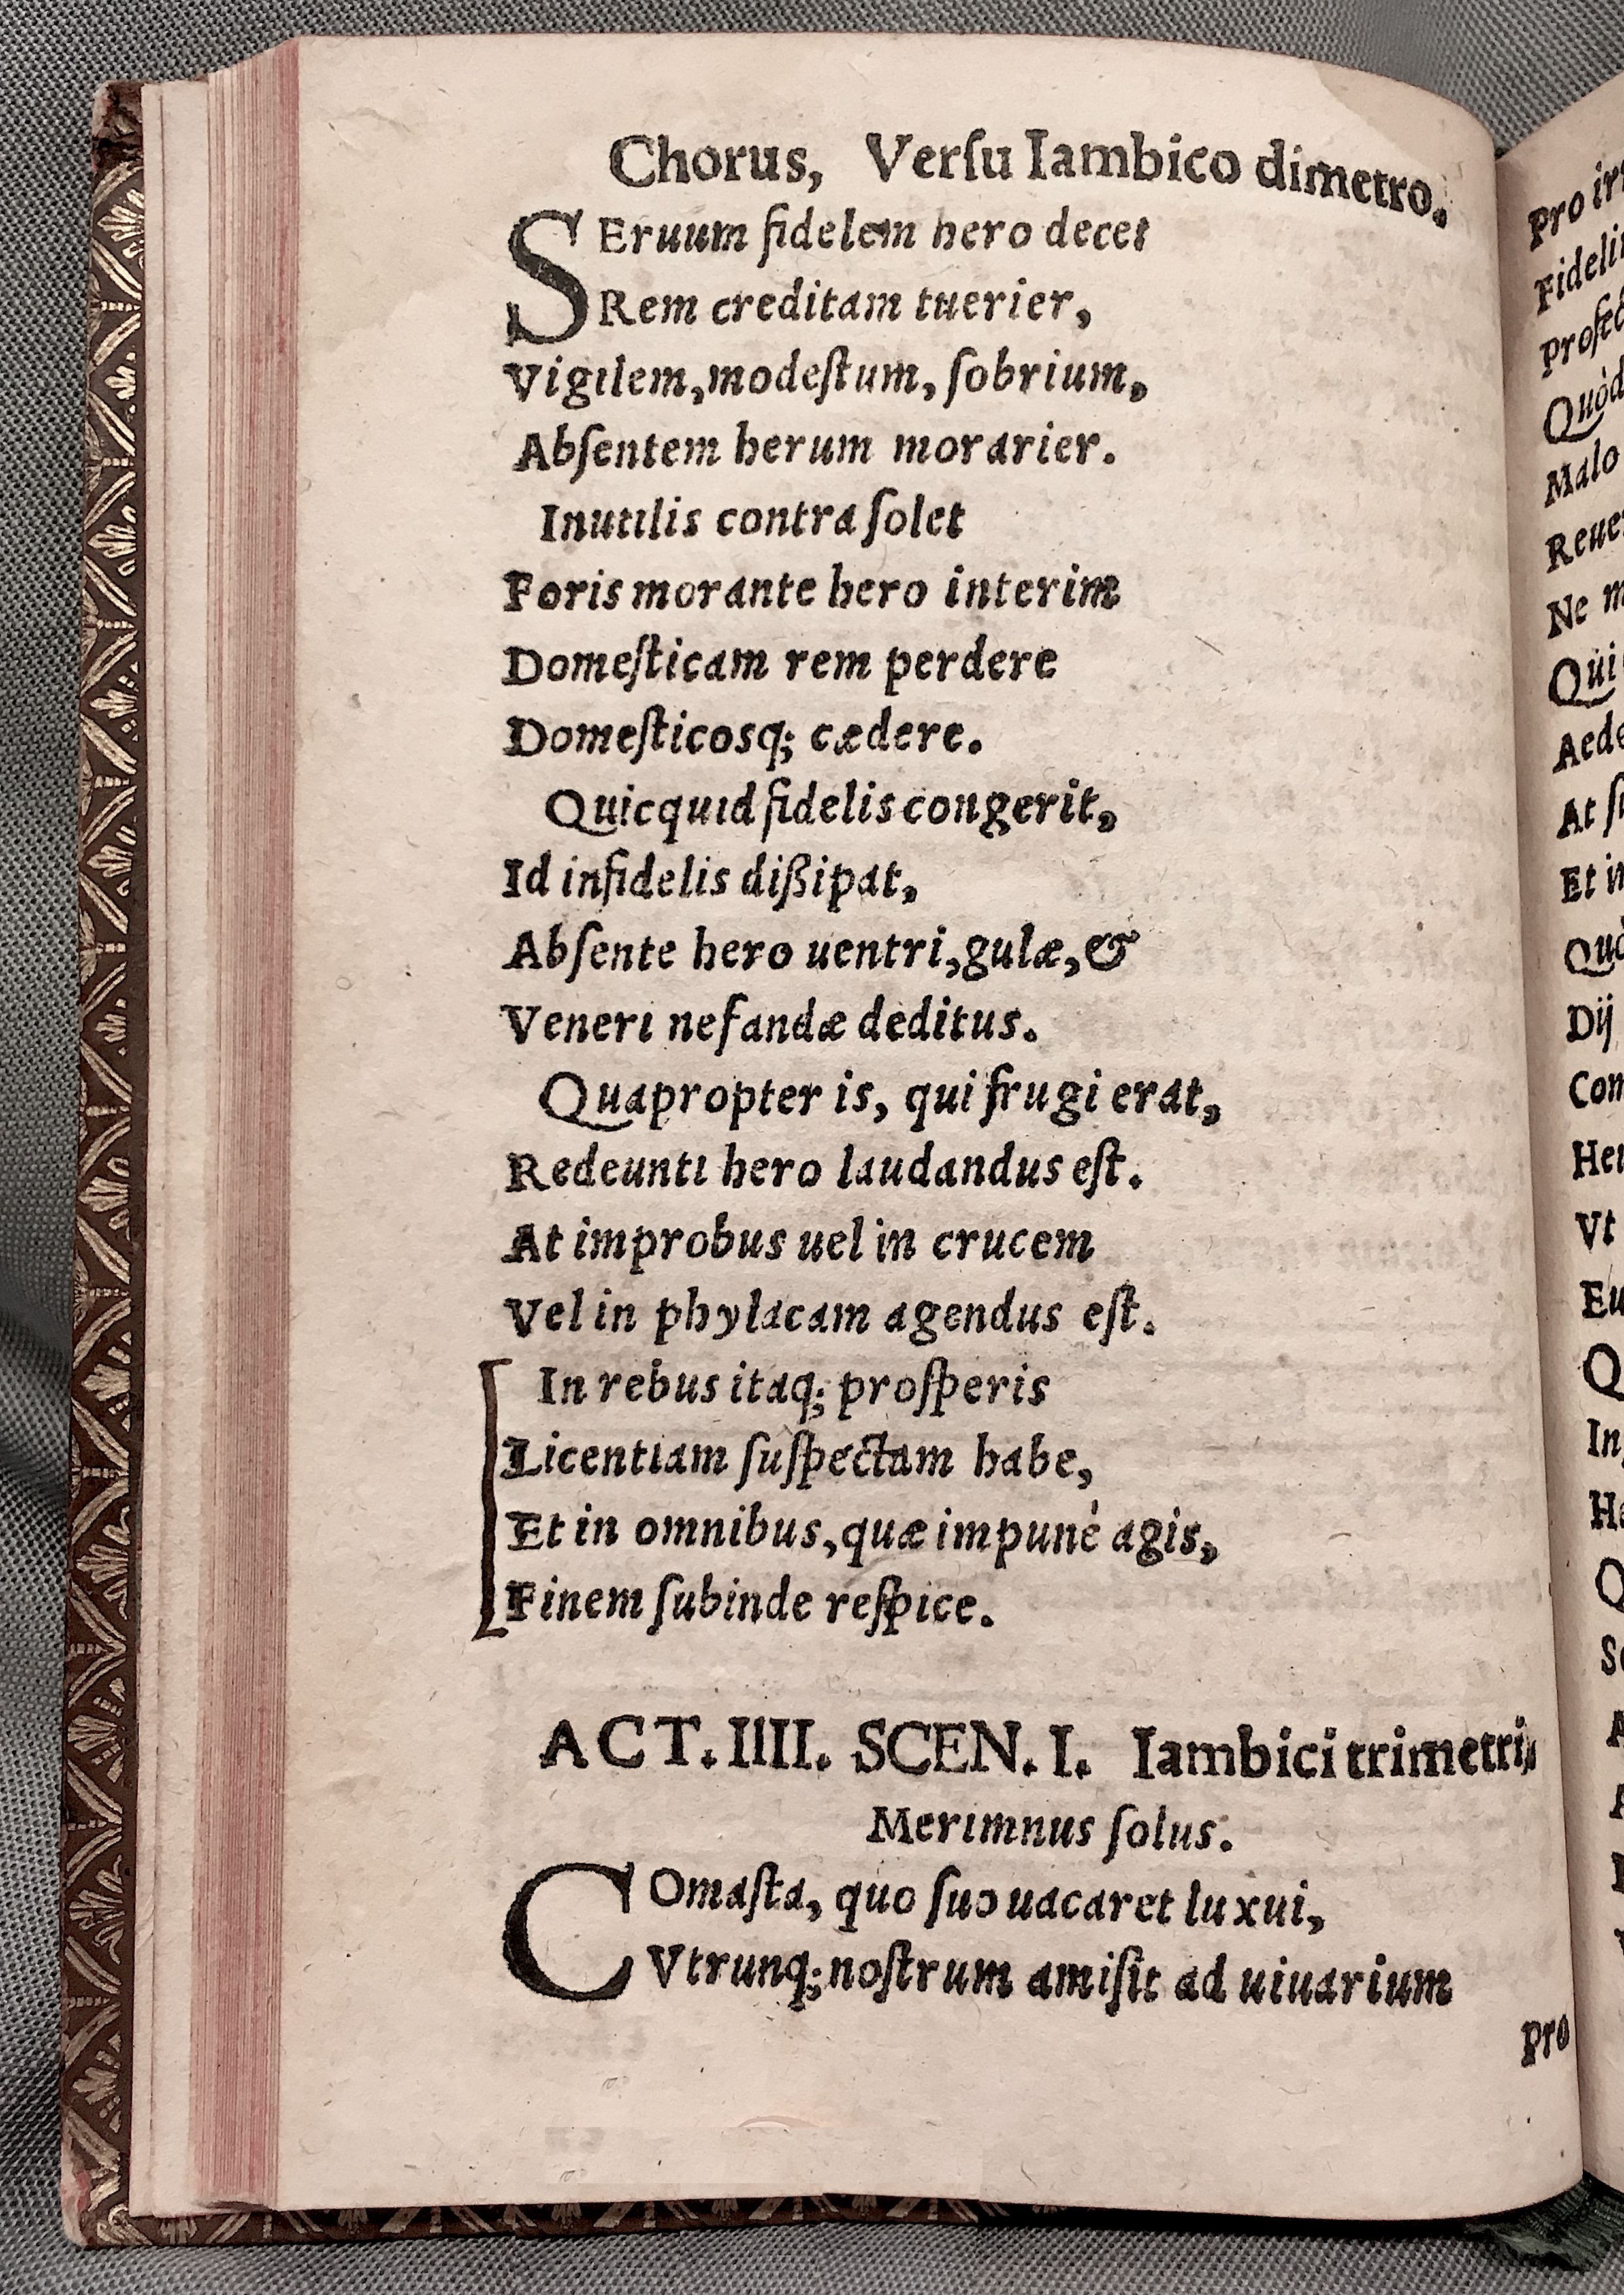 Chorus, Verſu Iambico dimetro.
SEruum fidelem hero decet
Rem creditam tuerier,
Vigilem, modeſtum, ſobrium,
Abſentem herum morarier.
Inutilis contra ſolet
Foris morante hero interim
Domeſticam rem perdere
Domeſticosq; cædere.
Quicquid fidelis congerit,
Id infidelis dißipat,
Abſente hero uentri, gulæ, &
Veneri nefandæ deditus.
Quapropter is, qui frugi erat,
Redeunti hero laudandus eſt.
At improbus uel in crucem
Vel in phylacam agendus eſt.
In rebus itaq; proſperis
Licentiam ſuſpectam habe,
Et in omnibus, quæ impunè agis,
Finem ſubinde reſpice.
ACT. IIII. SCEN. I. Iambici trimetri,
Merimnus ſolus.
COmaſta, quo ſuo uacaret luxui,
Vtrunq; noſtrum amiſit ad uiuarium
pro
Pro
Quòd
Malo
Ne
Qui
At
Et
Dij
Vt